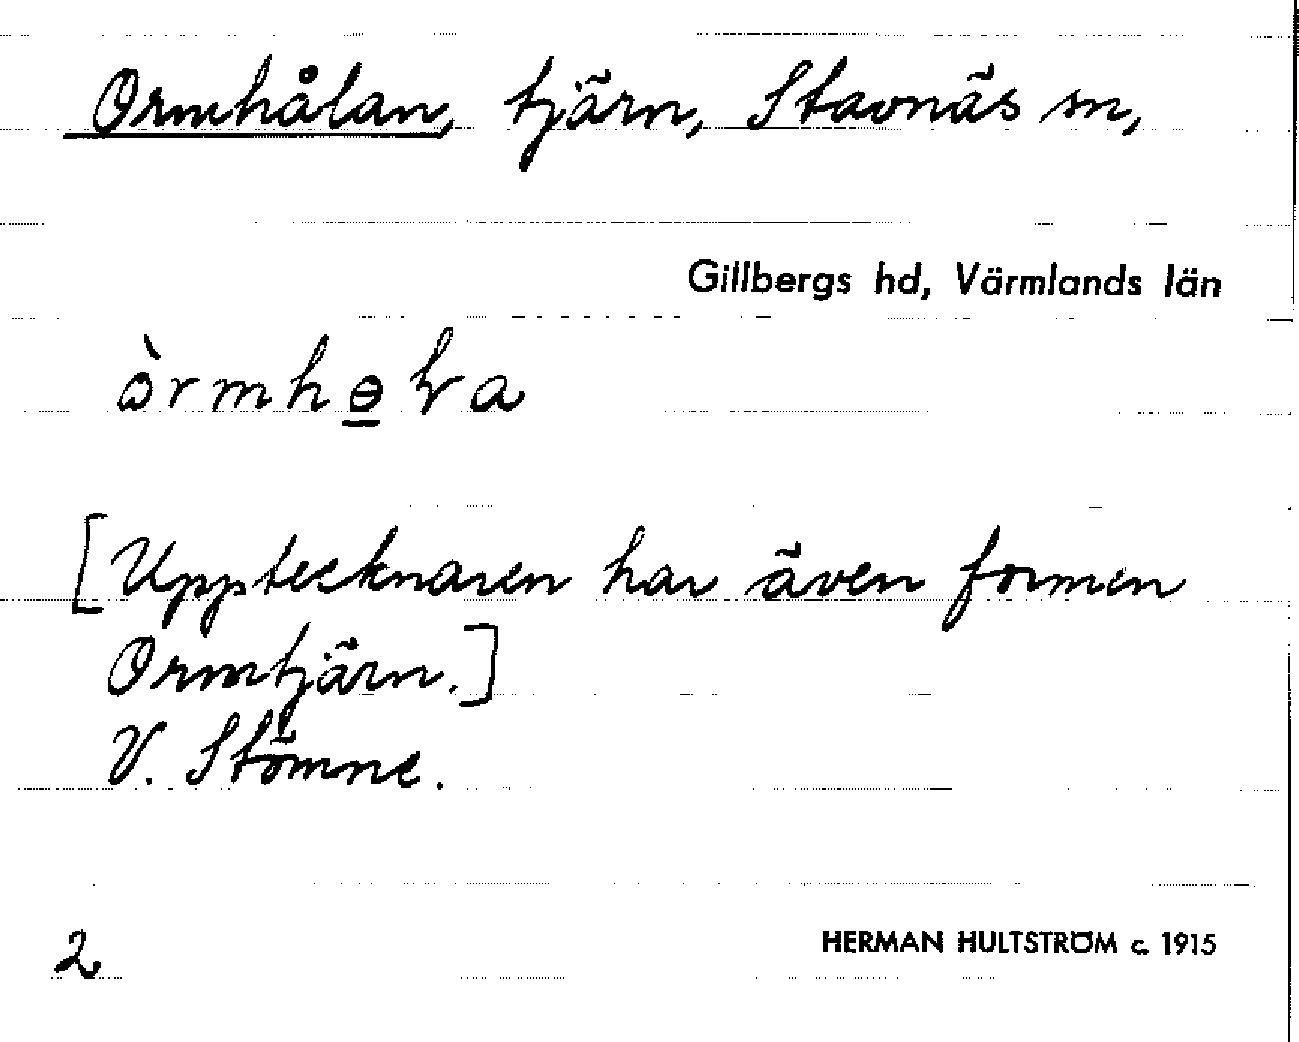 Ormhålan, tjärn, Stavnäs sn,
Gillbergs hd, Värmlands län
[Upptecknaren har även formen
Ormtjärn.]
V. Stömne.
2
HERMAN HULTSTRÖM c. 1915